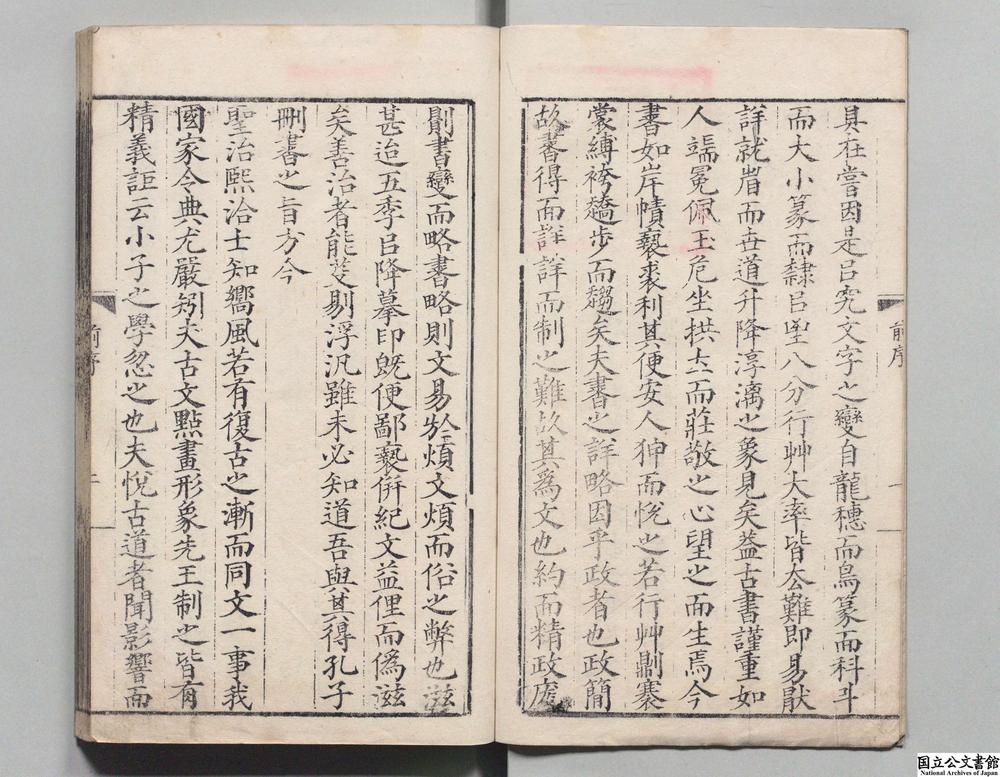 具在嘗因是㠯究文字之變自龍穗而鳥篆而科斗
而大小篆而隸㠯至八分行艸大率皆厺難即易猒
詳就眚而世道升降淳漓之象見矣葢古書謹重如
人端冕佩玉危坐拱立而莊敬之心望之而生焉今
書如岸幘褻裘利其便安人狎而悅之若行艸則褰
裳縛袴趫步而趨矣夫書之詳略因乎政者也政簡
故書得而詳詳而制之難故其爲文也約而精政厖
則書變而略書略則文易於煩文煩而俗之弊也滋
甚迨五季㠯降摹印旣便鄙褻倂紀文益俚而僞滋
矣善治者能芟剔浮汎雖未必知道吾與其得孔子
刪書之旨方今
聖治熙洽士知嚮風若有復古之漸而同文一事我
國家令典尤嚴矧夫古文㸃畫形象先王制之皆有
精義詎云小子之學忽之也夫悅古道者聞影響而
前序
前序
国立公文書館
National Archives of Japan